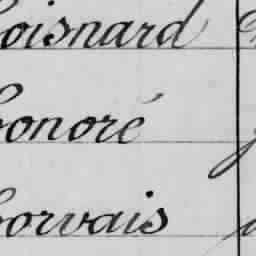 oisnard
onoré
orvais